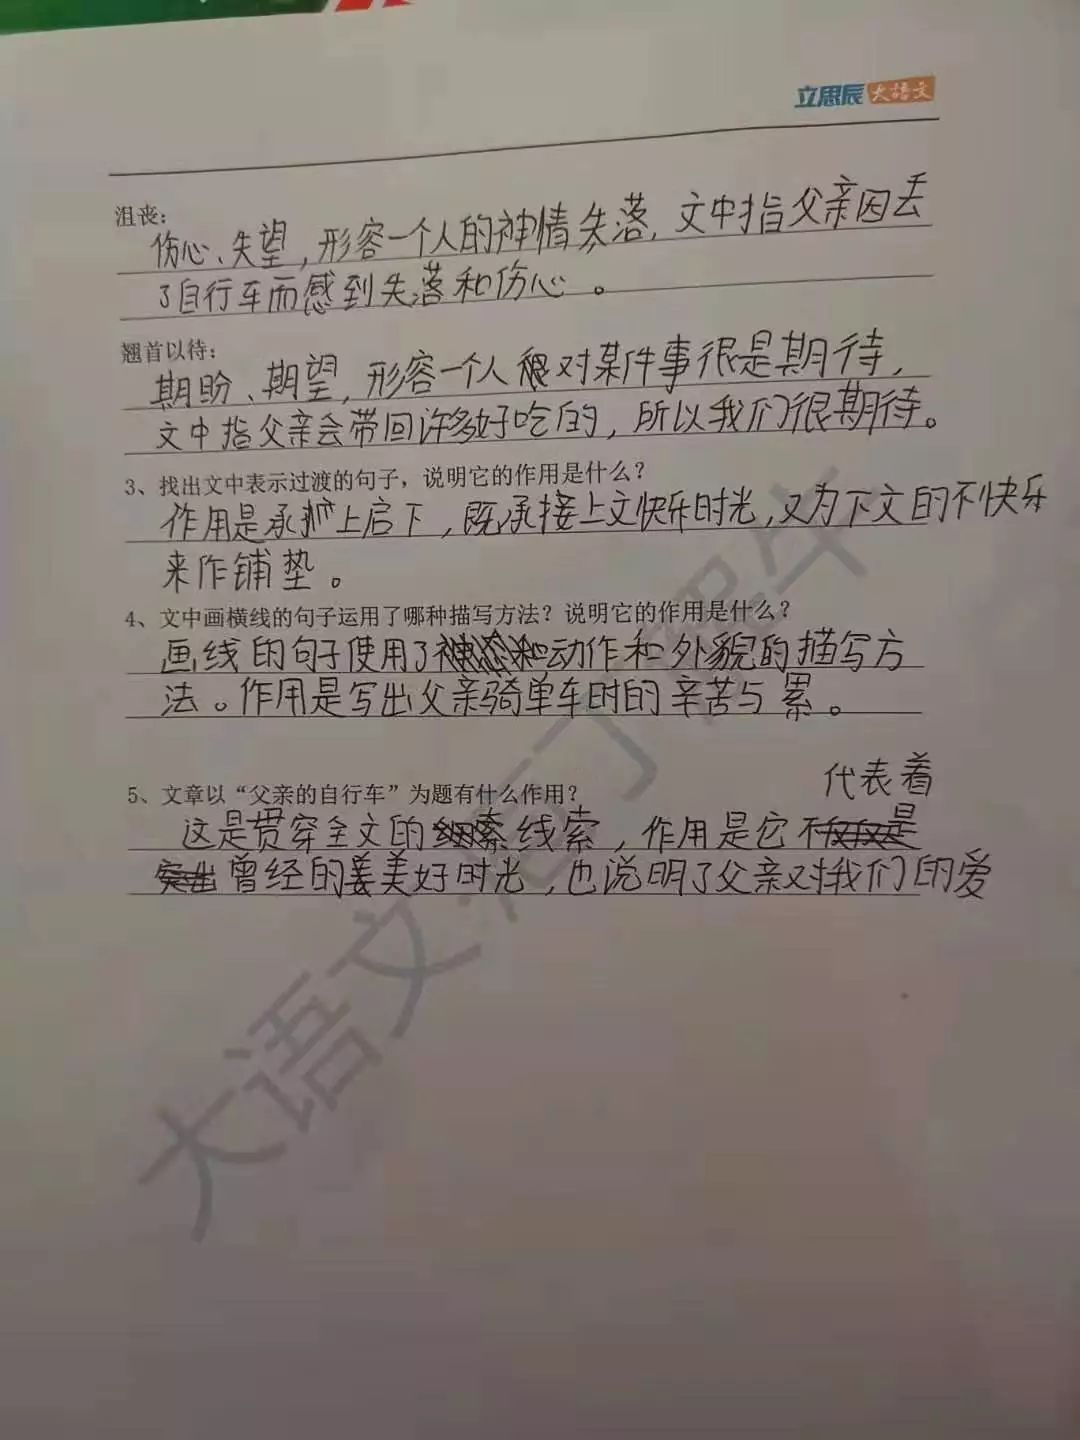 立思辰 大语文
沮丧:
伤心、失望，形容一个人的神情失落，文中指父亲因丢
了自行车而感到失落和伤心。
翘首以待:
期盼、期望，形容一个人很对某件事很是期待，
文中指父亲会带回许多好吃的，所以我们很期待。
3、找出文中表示过渡的句子，说明它的作用是什么？
作用是承上启下，既承接上文快乐时光，又为下文的不快乐
来作铺垫。
4、文中画横线的句子运用了哪种描写方法？说明它的作用是什么？
画线的句子使用了神态和动作和外貌的描写方
法。作用是写出父亲骑单车时的辛苦与累。
5、文章以“父亲的自行车”为题有什么作用？
代表着
这是贯穿全文的线索，作用是它不仅仅是
突出曾经的美好时光，也说明了父亲对我们的爱
大语文·庖丁解牛